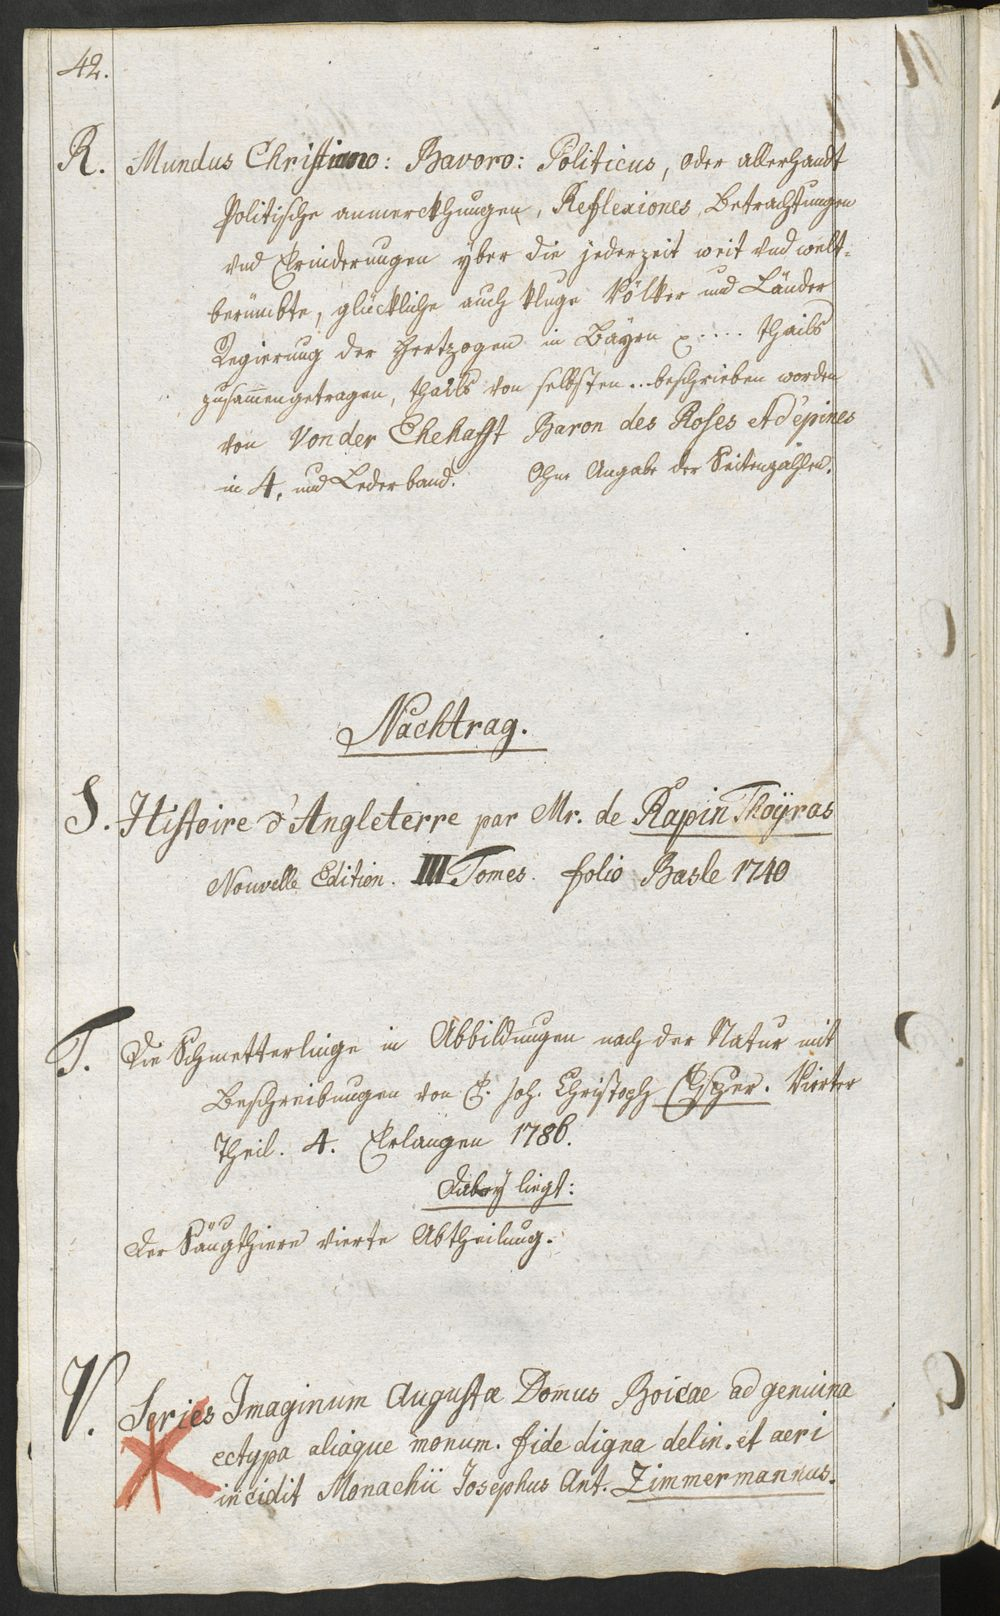 42.
R. Mundus Christiano: Bavoro: Politicus, oder allerhandt
Politische anmerckhungen, Reflexiones, Betrachtungen
vnd Erinderungen yber die jederzeit weit vnd welt-
berümbte, glückliche auch kluge Völker und Länder
Regierung der Hertzogen in Bayrn .... theils
zusam̄engetragen, theils von selbsten .. beschrieben worden
von Von der Ehehafft Baron des Roses et d'épines
in 4. und Lederband. Ohne Angabe der Seitenzahlen.
Nachtrag.
S. Histoire d'Angleterre par Mr. de Rapin Thoÿras
Nouvelle Edition. III Tomes. folio Basle 1740
T. Die Schmetterlinge in Abbildungen nach der Natur mit
Beschreibungen von E. Joh. Christoph Esper. Vierter
Theil. 4. Erlangen 1786.
Dabey liegt:
Der Säugthiere vierte Abtheilung.
V. Series Imaginum Augustæ Domus Boicae ad genuina
ectypa aliaque monum. fide digna delin. et aeri
incidit Monachii Josephus Ant. Zimmermannus.